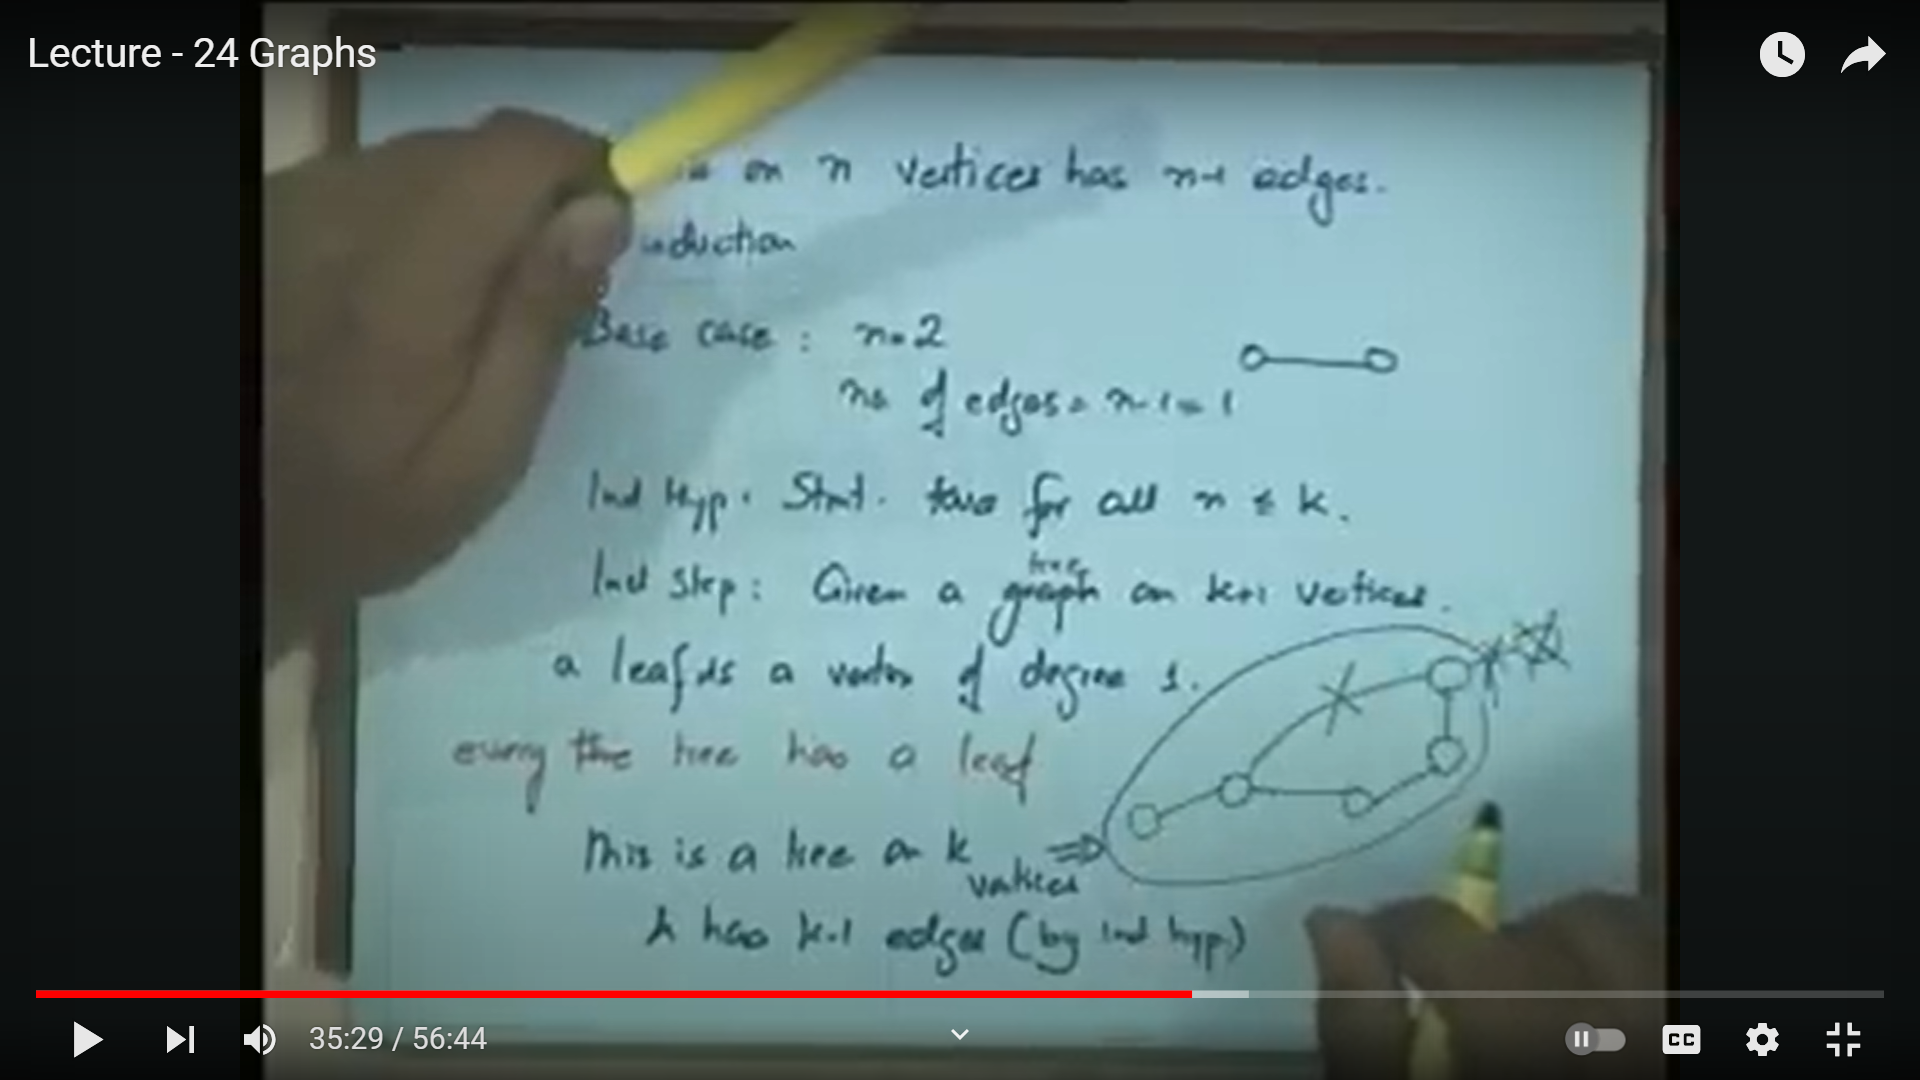 Lecture - 24 Graphs
on n vertices has n-1 edges.
induction
Base case : n=2
no of edges = n-1 = 1
Ind Hyp. Stmt. true for all n ≤ k.
tree
Ind Step : Given a graph on k+1 vertices.
a leaf is a vertex of degree 1.
every tree has a leaf
This is a tree on k
vertices
has k-1 edges (by ind hyp.)
35:29 / 56:44
CC